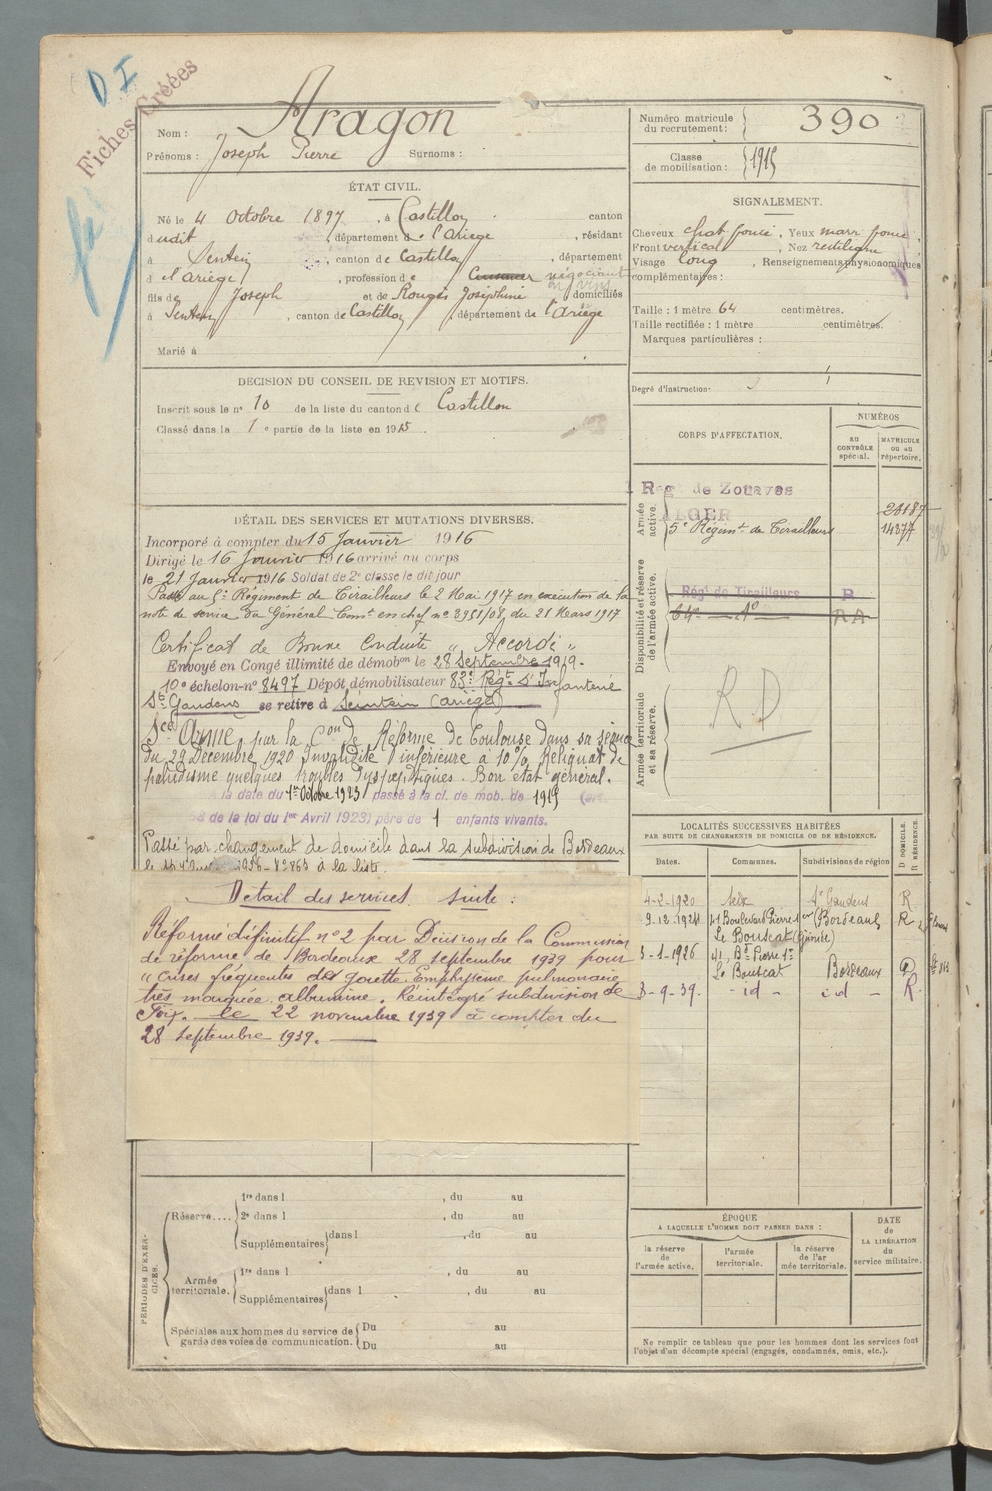 D I
Fiches Créées
Nom : Aragon
Prénoms : Joseph Pierre Surnoms :
ÉTAT CIVIL.
Né le 4 Octobre 1897, à Castillon canton
dudit, département de l'Ariège, résidant
à Sentein, canton de Castillon, département
d l'Ariège, profession de négociant
en vins
fils de Joseph et de Rougés Joséphine domiciliés
à Sentein, canton de Castillon, département de l'Ariège
Marié à
DECISION DU CONSEIL DE REVISION ET MOTIFS.
Inscrit sous le n° 10 de la liste du canton de Castillon
Classé dans la 1e partie de la liste en 1915.
DÉTAIL DES SERVICES ET MUTATIONS DIVERSES.
Incorporé à compter du 15 Janvier 1916
Dirigé le 16 Janvier 1916 arrivé au corps
le 21 Janvier 1916 Soldat de 2e classe le dit jour
Passé au 5e Régiment de Tirailleurs le 2 Mai 1917 en exécution de la
note de service du Général Comt en chef n° 3951/08 du 21 Mars 1917
Certificat de Bonne Conduite " Accordé "
Envoyé en Congé illimité de démobon le 28 Septembre 1919.
10e échelon-n° 8497 Dépôt démobilisateur 83e Régt d'Infanterie
St Gaudens se retire à Seintein (Ariège)
Sce Armé, par la Con de Réforme de Toulouse dans sa séance
du 29 Décembre 1920 Invalidité inférieure à 10% Reliquat de
paludisme quelques troubles dyspeptiques. Bon état général.
à la date du 1er Octobre 1923 passé à la cl. de mob. de 1915 (art.
58 de la loi du 1er Avril 1923) père de 1 enfants vivants.
Passé par changement de domicile dans la subdivision de Bordeaux
à la liste
Détail des services suite :
Réformé définitif n° 2 par Décision de la Commission
de réforme de Bordeaux 28 septembre 1939 pour
"crises fréquentes de goutte. Emphysème pulmonaire
très marquée. albumine. Réintégré subdivision de
Foix. le 22 novembre 1939 à compter du
28 septembre 1939.
PÉRIODES D'EXERCICES.
Réserve.... 1re dans l , du au
2e dans l , du au
Supplémentaires dans l , du au
Armée territoriale. 1re dans l , du au
Supplémentaires dans l , du au
Spéciales aux hommes du service de garde des voies de communication. Du au
Du au
Numéro matricule du recrutement : 390
Classe de mobilisation : 1915
SIGNALEMENT.
Cheveux chat foncé, Yeux marr foncé,
Front vertical, Nez rectiligne
Visage long, Renseignements physionomiques
complémentaires :
Taille : 1 mètre 64 centimètres.
Taille rectifiée : 1 mètre centimètres.
Marques particulières :
Degré d'instruction
CORPS D'AFFECTATION.
NUMÉROS
AU CONTRÔLE spécial.
MATRICULE ou au répertoire.
Armée active.
Rég de Zouaves
ALGER
5e Régimt de Tirailleurs 14377
Disponibilité et réserve de l'armée active.
Régt de Tirailleurs R
RA
Armée territoriale et sa réserve.
RD
LOCALITÉS SUCCESSIVES HABITÉES
PAR SUITE DE CHANGEMENTS DE DOMICILE OU DE RÉSIDENCE.
Dates. Communes. Subdivisions de région D DOMICILE. R RÉSIDENCE.
4-2-1920 Seix St Gaudens R
9.12.1924 41 Boulevard Pierre 1er (Bordeaux R
Le Bouscat (Gironde)
3-1-1926 41, Bd Pierre 1er
Le Bouscat Bordeaux D
3-9-39. - id - id - R
ÉPOQUE
A LAQUELLE L'HOMME DOIT PASSER DANS :
la réserve de l'armée active.
l'armée territoriale.
la réserve de l'ar mée territoriale.
DATE de LA LIBÉRATION du service militaire.
Ne remplir ce tableau que pour les hommes dont les services font
l'objet d'un décompte spécial (engagés, condamnés, omis, etc.).